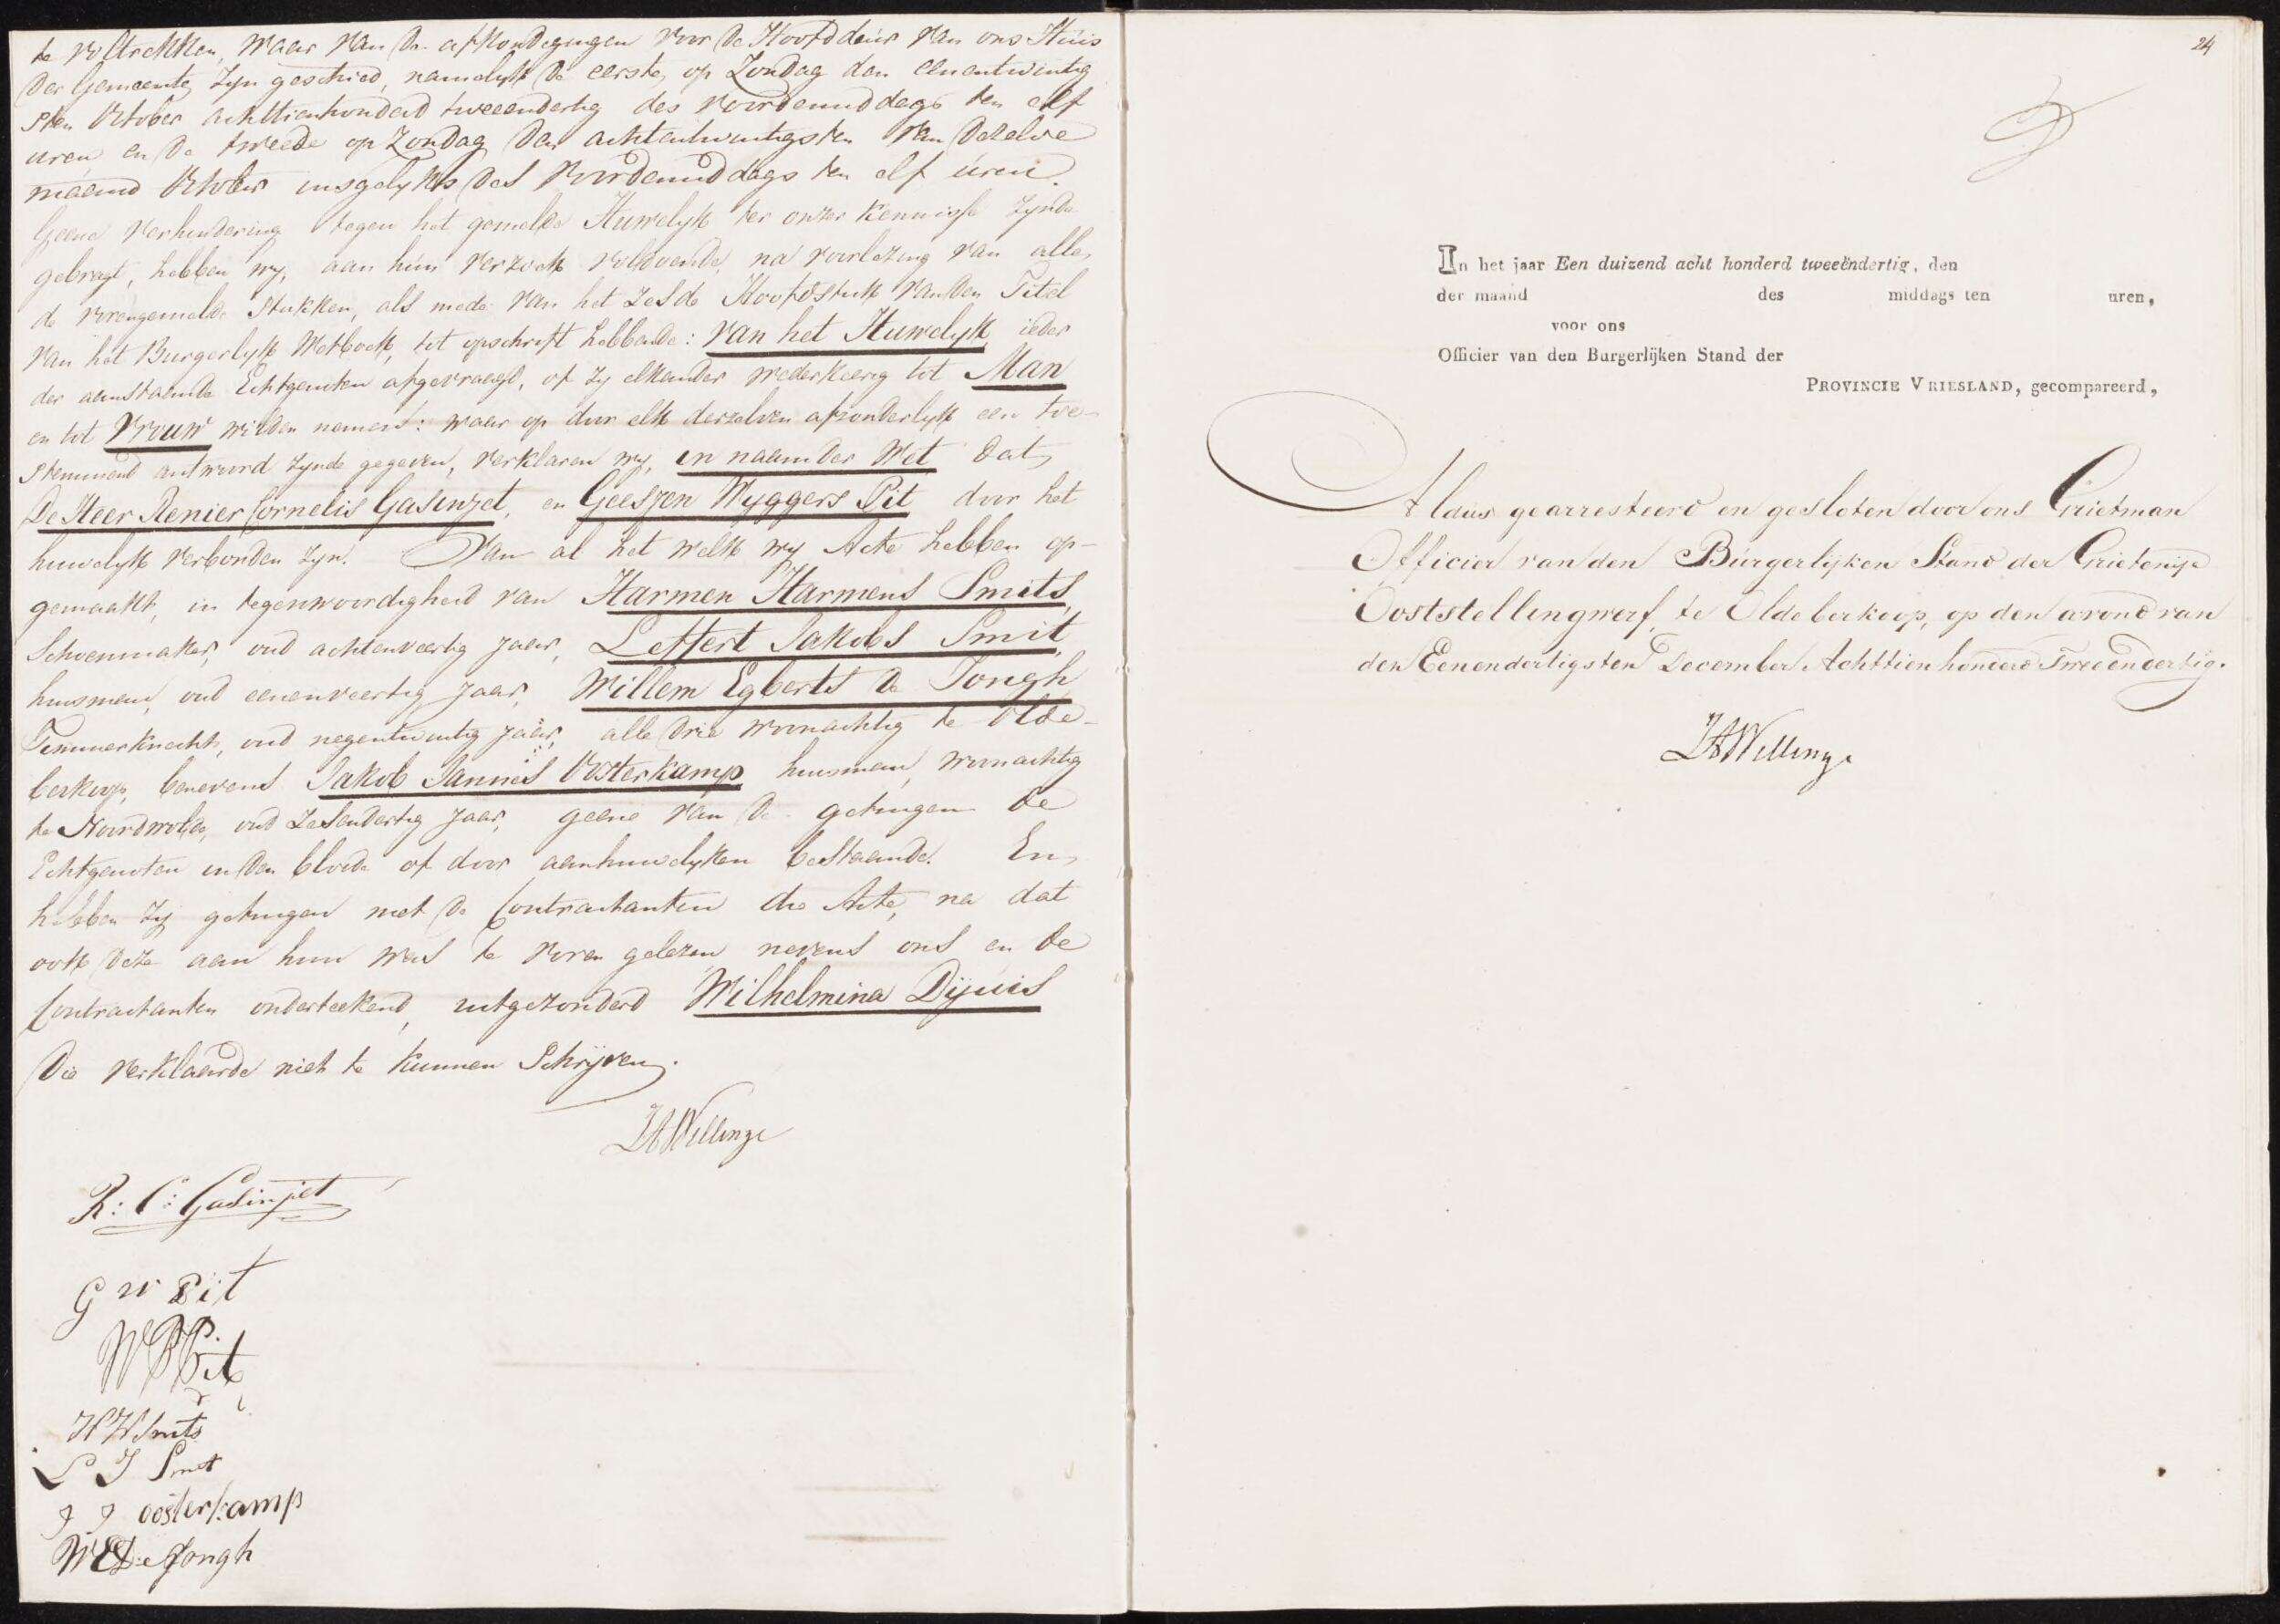 te voltrekken, waar van de afkondigingen voor de Hoofddeur van ons Huis
der Gemeente zyn geschied, namelyk de eerste, op Zondag den eenentwintig
sten October achttienhonderd tweeendertig des voordemiddags ten elf
uren en de tweede op Zondag den achtentwintigsten van dezelve
maand October insgelyks des voordemiddags ten elf uren.
Geene verhindering tegen het gemelde Huwelyk ter onzer kennisse zynde
gebragt, hebben wy, aan hun verzoek voldoende, na voorlezing van alle
de vorengemelde stukken, als mede van het zesde Hoofdstuk van den Titel
van het Burgerlyk Wetboek, tot opschrift hebbende: van het Huwelyk, ieder
der aanstaande Echtgenoten afgevraagd, of zy elkander wederkeerig tot Man
en tot Vrouw wilden nemen: waar op door elk derzelven afzonderlyk een toe-
stemmend antwoord zynde gegeven, verklaren wy, in naam der Wet dat
De Heer Renier Cornelis Gasinjet, en Geesjen Wyggers Pit door het
huwelyk verbonden zyn. Van al het welk wy Acte hebben op-
gemaakt, in tegenwoordigheid van Harmen Harmens Smits,
Schoenmaker, oud achtenveertig jaar, Leffert Jakobs Smit,
huisman, oud eenenveertig jaar, Willem Egberts de Jongh
Timmerknecht, oud negentwintig jaar, alle drie woonachtig te Olde-
berkoop, benevens Jakob Jannes Oosterkamp huisman, woonachtig
te Noordwolde, oud zesendertig jaar, geene van de getuigen de
Echtgenoten in den bloede of door aanhuwelyken bestaande. En
hebben zy getuigen met de Contractanten die Acte, na dat
ook deze aan hun was te voren gelezen nevens ons en de
Contractanten onderteekend, uitgezonderd Wilhelmina Dijuis
die verklaarde niet te kunnen Schrijven.
Willinge
R: C: Gasinjet
G W Pit
Pit
H H Smits
L J Smit
J J oosterkamp
W E De Jongh
24
In het jaar Een duizend acht honderd tweeëndertig, den
der maand des middags ten uren,
voor ons
Officier van den Burgerlijken Stand der
PROVINCIE VRIESLAND, gecompareerd,
Aldus gearresteerd en gesloten door ons Grietman
Officier van den Burgerlijken Stand der Grietenije
Ooststellingwerf, te Oldeberkoop, op den avond van
den Eenendertigsten December Achttienhonderd Tweeendertig.
Willinge